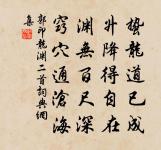 蟄龍道已成
升降得自在
淵無百尺深
竅穴通滄海
郭印龍淵二首詞典網
集